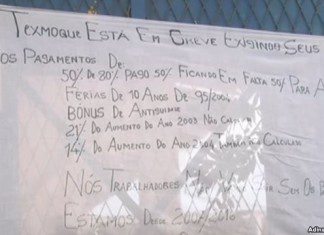 TEXMOQUE ESTÁ EM GREVE EXIGINDO SEUS
OS PAGAMENTOS DE:
50% DE 80% PAGO 50% FICANDO EM FALTA 50% PARA A
FERIAS DE 10 ANOS DE 95/2004
BONUS DE ANTIGUIDADE
21% DO AUMENTO DO ANO 2003 NÃO CALCULADO
14% DO AUMENTO DO ANO 2004 TAMBEM NÃO CALCULADO
NÓS TRABALHADORES SAIR SEM OS
ESTAMOS DESDE